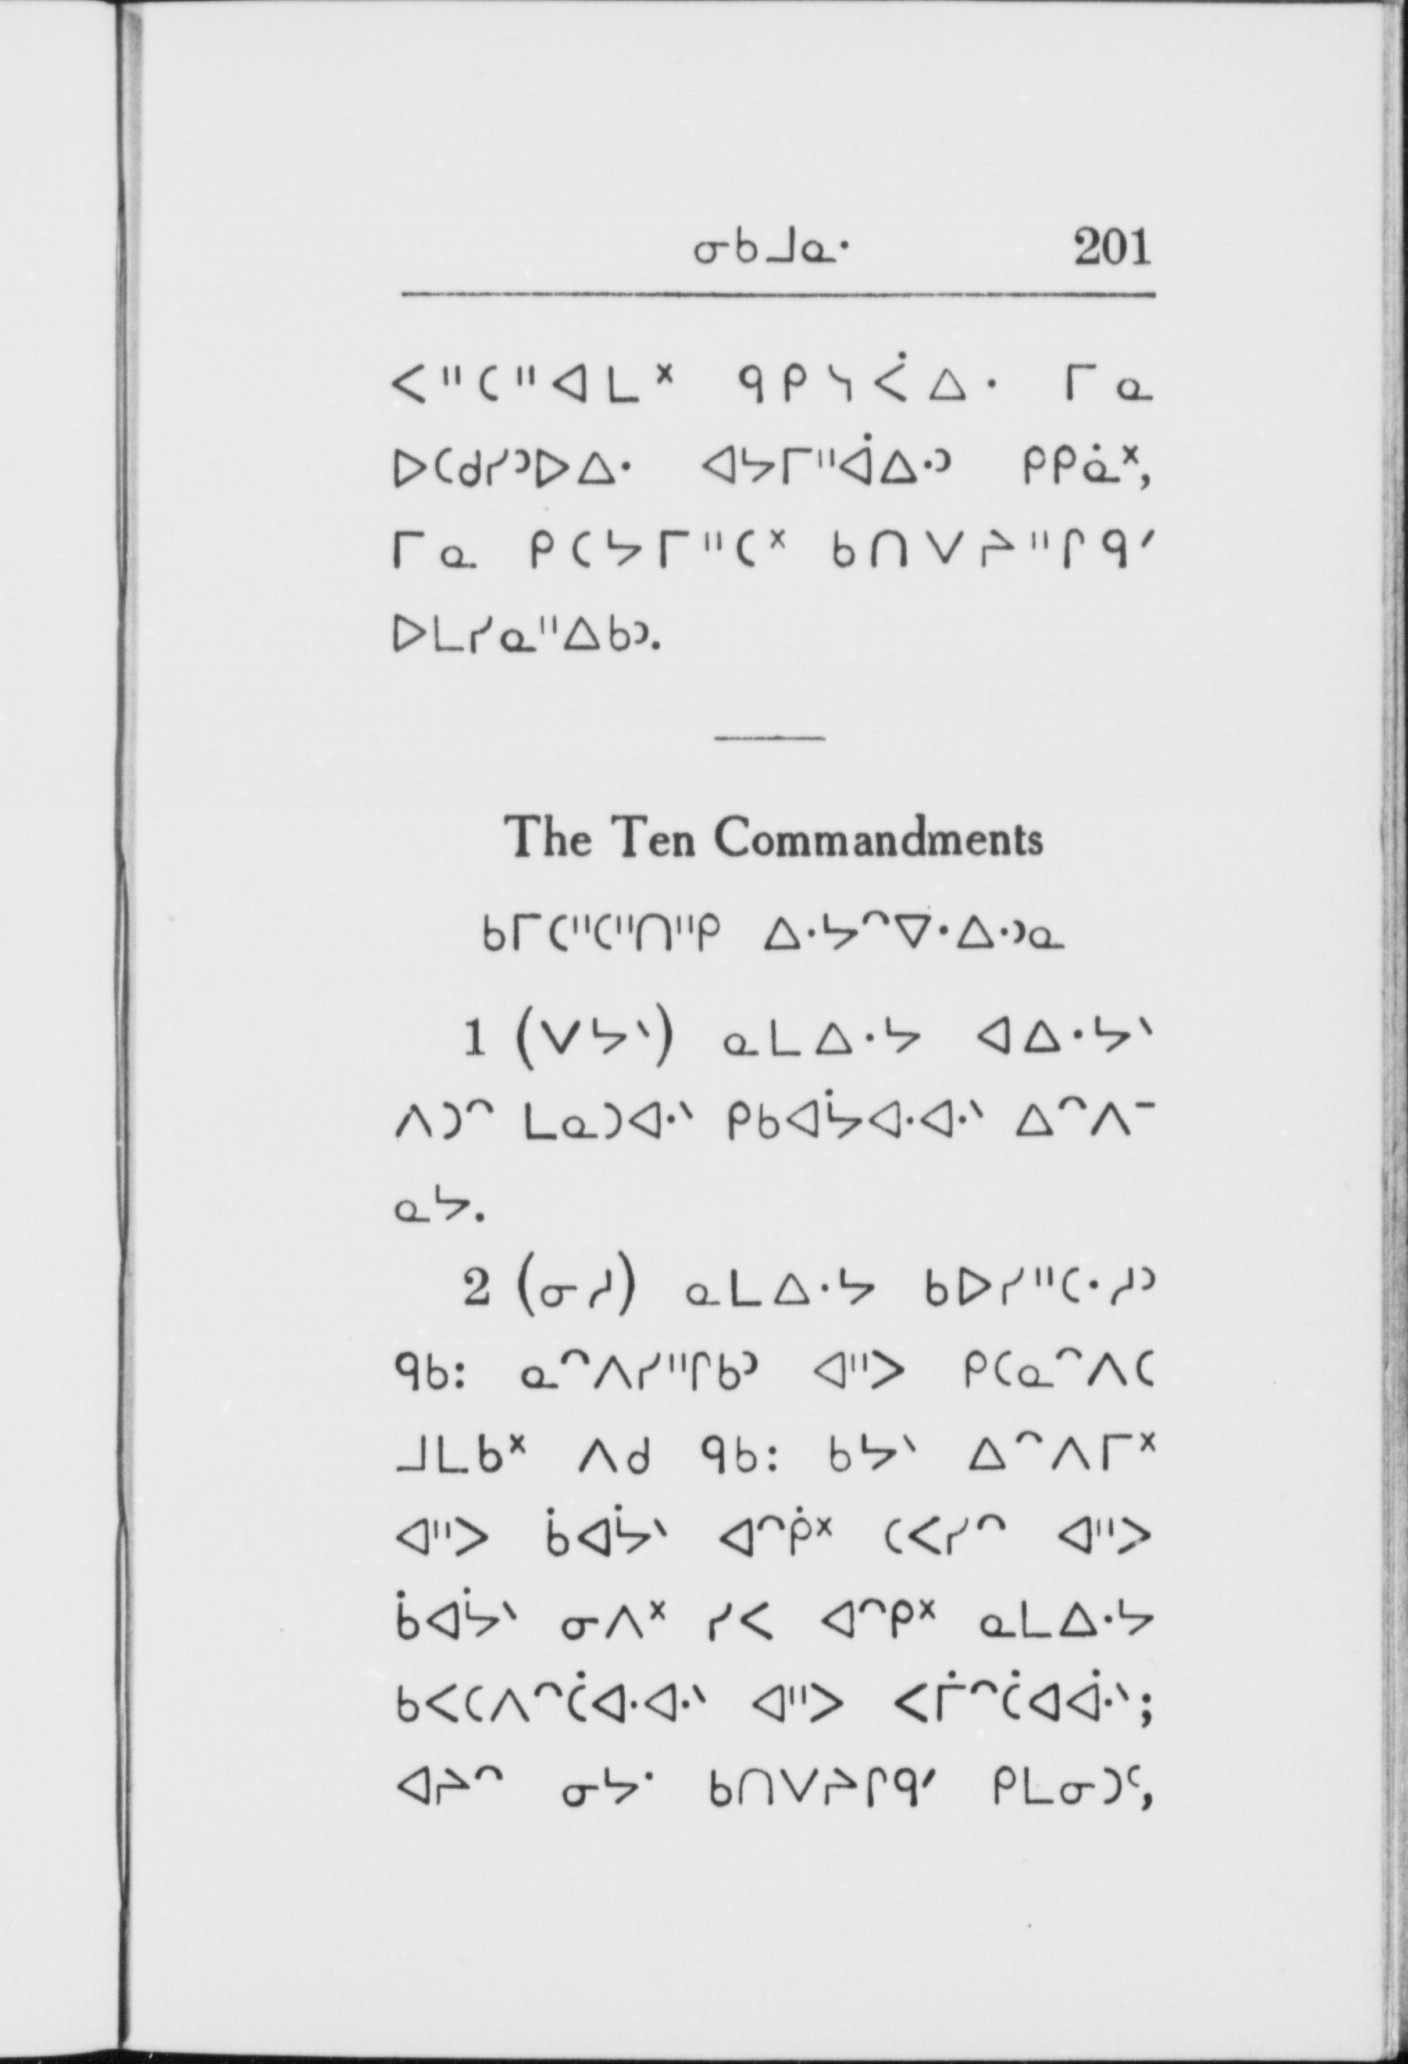 ᓂᑲᒧᓇᐧ 201
ᐸᐦᑕᐦᐊᒪᕽ ᑫᑭᓭᐹᐃᐧ ᒥᓇ
ᐅᑕᑯᓯᐣᐅᐃᐧ ᐊᔭᒥᐦᐋᐃᐧᐣ ᑭᑭᓈᕽ,
ᒥᓇ ᑭᑕᔭᒥᐦᑕᕽ ᑲᑎᐯᔨᐦᒋᑫᐟ
ᐅᒪᓯᓇᐦᐃᑲᐣ.
The Ten Commandments
ᑲᒥᑕᐦᑕᐦᑎᐦᑭ ᐃᐧᔭᐢᐁᐧᐃᐧᐣᓇ
1 (ᐯᔭᐠ) ᓇᒪᐃᐧᔭ ᐊᐃᐧᔭᐠ
ᐱᑐᐢ ᒪᓇᑐᐊᐧᐠ ᑭᑲᐊᔮᐊᐧᐊᐧᐠ ᐃᐢᐱ-
ᓇᔭ.
2 (ᓂᓱ) ᓇᒪᐃᐧᔭ ᑲᐅᓯᐦᑕᐧᓱᐣ
ᑫᑲ: ᓇᐢᐱᓯᐦᒋᑲᐣ ᐊᐦᐳ ᑭᑕᓇᐢᐱᑕ
ᒧᒪᑲᕽ ᐱᑯ ᑫᑲ: ᑲᔭᐠ ᐃᐢᐱᒥᕽ
ᐊᐦᐳ ᑳᐊᔮᐠ ᐊᐢᑮᕽ ᑕᐸᓯᐢ ᐊᐦᐳ
ᑳᐊᔮᐠ ᓂᐱᕽ ᓯᐸ ᐊᐢᑭᕽ ᓇᒪᐃᐧᔭ
ᑲᐸᑕᐱᐢᑖᐊᐧᐊᐧᐠ ᐊᐦᐳ ᐸᒦᐢᑖᐊᐋᐧᐠ;
ᐊᔨᐢ ᓂᔭᐧ ᑲᑎᐯᔨᒋᑫᐟ ᑭᒪᓂᑐᒼ,